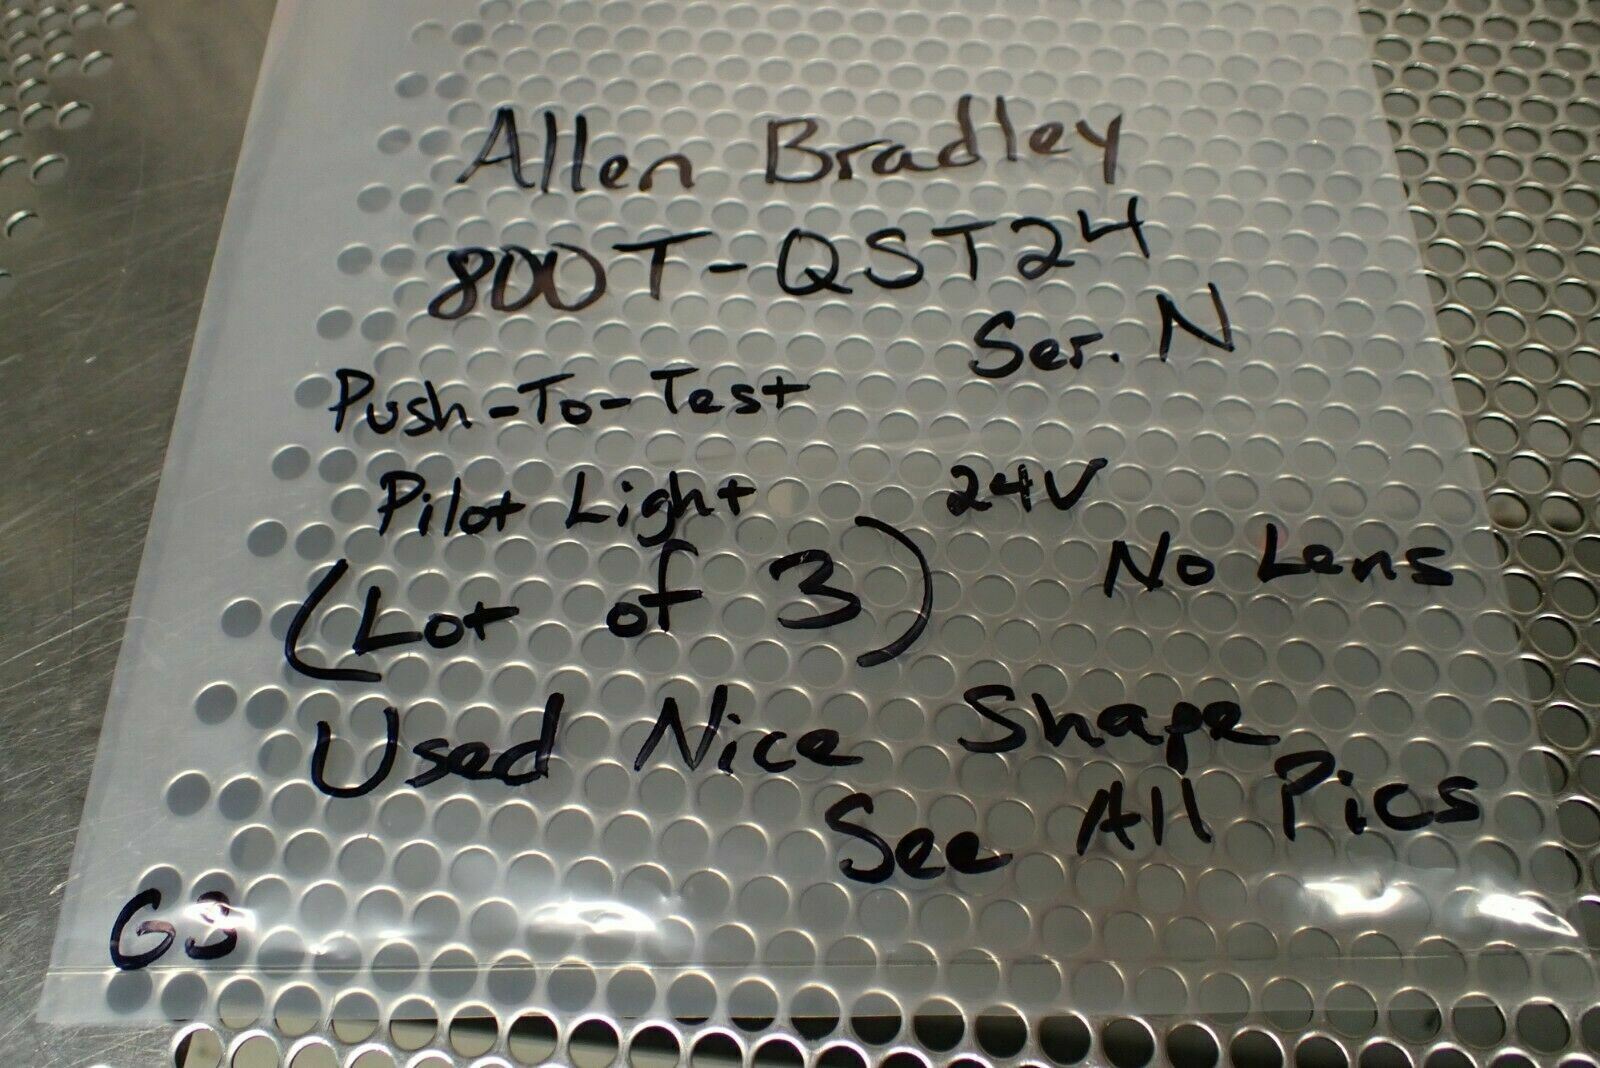 Allen Bradley
800T-QST24
Ser. N
Push-To-Test
Pilot Light 24V
No Lens
(Lot of 3)
Used Nice Shape
See All Pics
G3